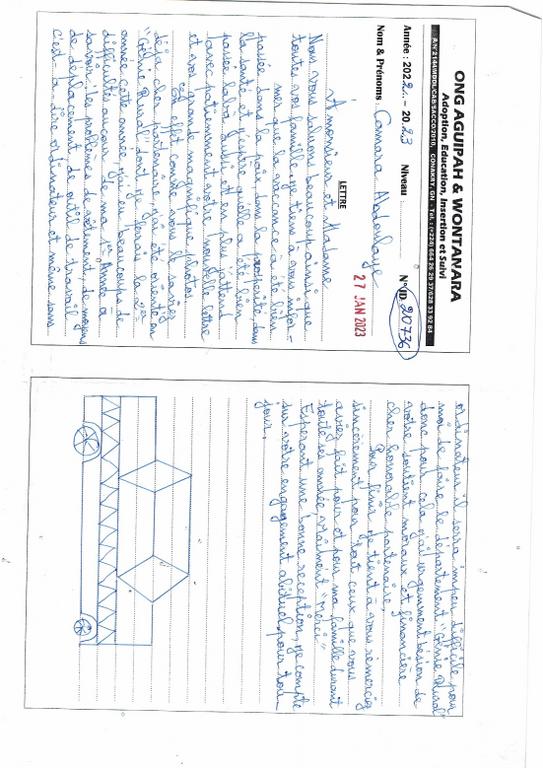 ONG AGUIPAH & WONTANARA
Adoption, Education, Insertion et Suivi
Année : 2022 - 2023 Niveau : N° ID. 20736
Nom & Prénoms : Camara Abdoulaye
27 JAN 2023
LETTRE
A monsieur et Madame
Nous vous saluons beaucoup ainsi que
toutes vos famille, je tiens à vous infor-
mer que la vaccance à été bien
passée dans la paix, dans la prospérité, dans
la santé et j'espère qu'elle a été bien
passée labas aussi et en plus j'attend
avec patiemment votre nouvelle lettre
et vos grande magnifique photos.
En effet comme vous il savez
déjà cher partenaire, j'ai été orienté en
"Génie Rural" dont je ferais la 2e
année cette année, j'ai eu beaucoups de
difficultés au cour de ma 1ère Année à
savoir : les problèmes de vêtement, de moyens
de déplacement, de outil de travail
c'est à dire ordinateur et même sans
ordinateur il serra impeu difficile pour
moi de faire le département "Génie Rural"
donc pour cela j'ai urgemment bésion de
votre soutient moraux et financière
cher honorable partenaire,
Pour finir je tient à vous remercier
sincèrement pour tout ceux que vous
aviez fait pour et pour ma famille durant
toute ses année, vraiment "Merci"
Esperant une bonne reception, je compte
sur votre engagement abituel pour tou-
jour,